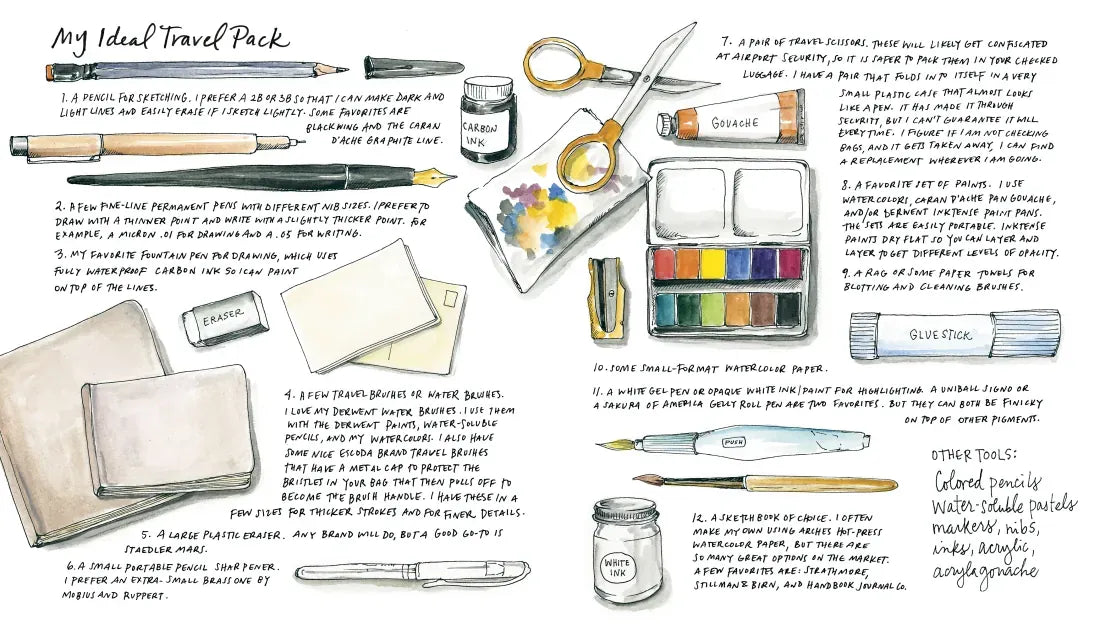 My Ideal Travel Pack
1. A PENCIL FOR SKETCHING. I PREFER A 2B OR 3B SO THAT I CAN MAKE DARK AND
LIGHT LINES AND EASILY ERASE IF I SKETCH LIGHTLY. SOME FAVORITES ARE
BLACKWING AND THE CARAN
D'ACHE GRAPHITE LINE.
CARBON
INK
2. A FEW FINE-LINE PERMANENT PENS WITH DIFFERENT NIB SIZES. I PREFER TO
DRAW WITH A THINNER POINT AND WRITE WITH A SLIGHTLY THICKER POINT. FOR
EXAMPLE, A MICRON .01 FOR DRAWING AND A .05 FOR WRITING.
3. MY FAVORITE FOUNTAIN PEN FOR DRAWING, WHICH USES
FULLY WATERPROOF CARBON INK SO I CAN PAINT
ON TOP OF THE LINES.
ERASER
4. A FEW TRAVEL BRUSHES OR WATER BRUSHES.
I LOVE MY DERWENT WATER BRUSHES. I USE THEM
WITH THE DERWENT PAINTS, WATER-SOLUBLE
PENCILS, AND MY WATERCOLORS. I ALSO HAVE
SOME NICE ESCODA BRAND TRAVEL BRUSHES
THAT HAVE A METAL CAP TO PROTECT THE
BRISTLES IN YOUR BAG THAT THEN PULLS OFF TO
BECOME THE BRUSH HANDLE. I HAVE THESE IN A
FEW SIZES FOR THICKER STROKES AND FOR FINER DETAILS.
5. A LARGE PLASTIC ERASER. ANY BRAND WILL DO, BUT A GOOD GO-TO IS
STAEDLER MARS.
6. A SMALL PORTABLE PENCIL SHARPENER.
I PREFER AN EXTRA-SMALL BRASS ONE BY
MOBIUS AND RUPPERT.
7. A PAIR OF TRAVEL SCISSORS. THESE WILL LIKELY GET CONFISCATED
AT AIRPORT SECURITY, SO IT IS SAFER TO PACK THEM IN YOUR CHECKED
LUGGAGE. I HAVE A PAIR THAT FOLDS IN TO ITSELF IN A VERY
SMALL PLASTIC CASE THAT ALMOST LOOKS
LIKE A PEN. IT HAS MADE IT THROUGH
SECURITY, BUT I CAN'T GUARANTEE IT WILL
EVERY TIME. I FIGURE IF I AM NOT CHECKING
BAGS, AND IT GETS TAKEN AWAY, I CAN FIND
A REPLACEMENT WHEREVER I AM GOING.
GOUACHE
8. A FAVORITE SET OF PAINTS. I USE
WATERCOLORS, CARAN D'ACHE PAN GOUACHE,
AND/OR DERWENT INKTENSE PAINT PANS.
THE SETS ARE EASILY PORTABLE. INKTENSE
PAINTS DRY FLAT SO YOU CAN LAYER AND
LAYER TO GET DIFFERENT LEVELS OF OPACITY.
9. A RAG OR SOME PAPER TOWELS FOR
BLOTTING AND CLEANING BRUSHES.
GLUE STICK
10. SOME SMALL-FORMAT WATERCOLOR PAPER.
11. A WHITE GEL PEN OR OPAQUE WHITE INK/PAINT FOR HIGHLIGHTING. A UNIBALL SIGNO OR
A SAKURA OF AMERICA GELLY ROLL PEN ARE TWO FAVORITES. BUT THEY CAN BOTH BE FINICKY
ON TOP OF OTHER PIGMENTS.
PUSH
WHITE
INK
12. A SKETCHBOOK OF CHOICE. I OFTEN
MAKE MY OWN USING ARCHES HOT-PRESS
WATERCOLOR PAPER, BUT THERE ARE
SO MANY GREAT OPTIONS ON THE MARKET.
A FEW FAVORITES ARE: STRATHMORE,
STILLMAN & BIRN, AND HANDBOOK JOURNAL CO.
OTHER TOOLS:
Colored pencils
Water-soluble pastels
markers, nibs,
inks, acrylic,
acryla gouache